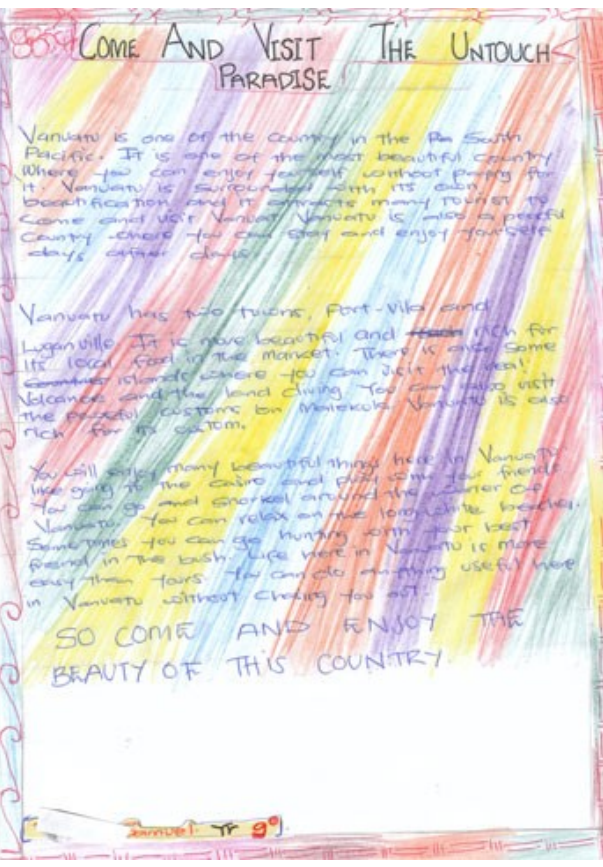 COME AND VISIT THE UNTOUCH
PARADISE
Vanuatu is one of the country in the South
Pacific. It is one of the most beautiful country
Where you can enjoy yourself without paying for
it. Vanuatu is surrounded with its own
beautification and it attracts many tourist to
come and visit Vanuat Vanuatu is also a peaceful
Country where you can stay and enjoy yourself
days after days.
Vanuatu has two towns, Port-Vila and
Luganville It is more beautiful and rich for
its local food in the market. There is also some
islands where you can visit the real
Volcanoe and the land diving You can also visit
the peaceful customs on Malekula Vanuatu is also
rich for its custom.
You will enjoy many beautiful things here in Vanuatu
like going to the and play with your friends
You can go and snorkel around the water of
Vanuatu. You can relax on the long white beaches.
Sometimes you can go hunting with your best
friend in the bush. Life here in Vanuatu is more
easy than yours. You can do anything useful here
in Vanuatu without chasing you out
SO COME AND ENJOY THE
BEAUTY OF THIS COUNTRY.
Samuel. Yr 9